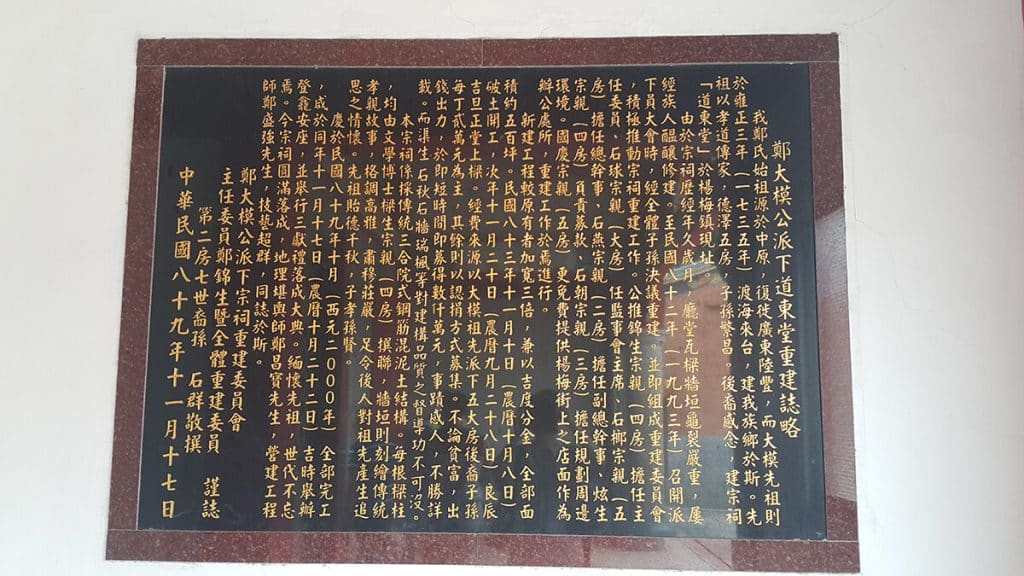 鄭大模公派下道東堂重建誌略
我鄭氏始祖源於中原，復徙廣東陸豐，而大模先祖則
於雍正三年（一七三五年）渡海來台，建我族鄉於斯。先
祖以孝道傳家，德澤五房　子孫繁昌。後裔感念　建宗祠
「道東堂」於楊梅鎮現址。
由於宗祠歷經年久歲月，廳堂瓦樑牆垣龜裂嚴重，屢
經族人醞釀修建。至民國八十二年（一九九三年）召開派
下員大會時，經全體子孫決議重建。並即組成重建委員會
，積極推動宗祠重建工作。公推錦生宗親（四房）擔任主
任委員、石球宗親（大房）任監事會主席、石梛宗親（五
房）擔任總幹事、石燕宗親（二房）擔任副總幹事、炫生
宗親（四房）負責募款、石朝宗親（三房）擔任規劃周邊
環境。國慶宗親（五房）更免費提供楊梅街上之店面作為
辦公處所，重建工作於焉進行。
新建工程較原有者加寬三倍，兼以吉度分金，全部面
積約五百坪。民國八十三年十一月十日（農曆十月八日）
破土開工，次年十一月二十日（農曆九月二十八日）良辰
吉旦正堂上樑。經費來源以大模祖先派下五大房後裔子孫
每丁貳萬元為主，其餘則以認捐方式募集。不論貧富，出
錢出力，於即短時間即募得數仟萬元，事蹟感人，不勝詳
載。而渠生、石秋、石牆瑞楓等對建構品質之督導功不可沒。
本宗祠係採傳統三合院式鋼筋混泥土結構。每根樑柱
，均由文學博士樑生宗親（四房）撰聯，牆垣則刻繪傳統
孝親故事，格調高雅，肅移莊嚴，足令後人對祖先產生追
思之情懷。先祖貽德千秋，子孝孫賢。
慶於民國八十九年十月（西元二０００年）全部完工
，成於同年十一月十七日（農曆十月二十二日）吉時舉辦
登龕安座，並舉行三獻禮落成大典。緬懷先祖，世代不忘
焉。今宗祠圓滿落成，地理堪輿師鄭昌寶先生，營建工程
師鄭盛強先生，技藝超群，同誌於斯。
鄭大模公派下宗祠重建委員會
主任委員鄭錦生暨全體重建委員　謹誌
第二房七世裔孫　石群敬撰
中華民國八十九年十一月十七日